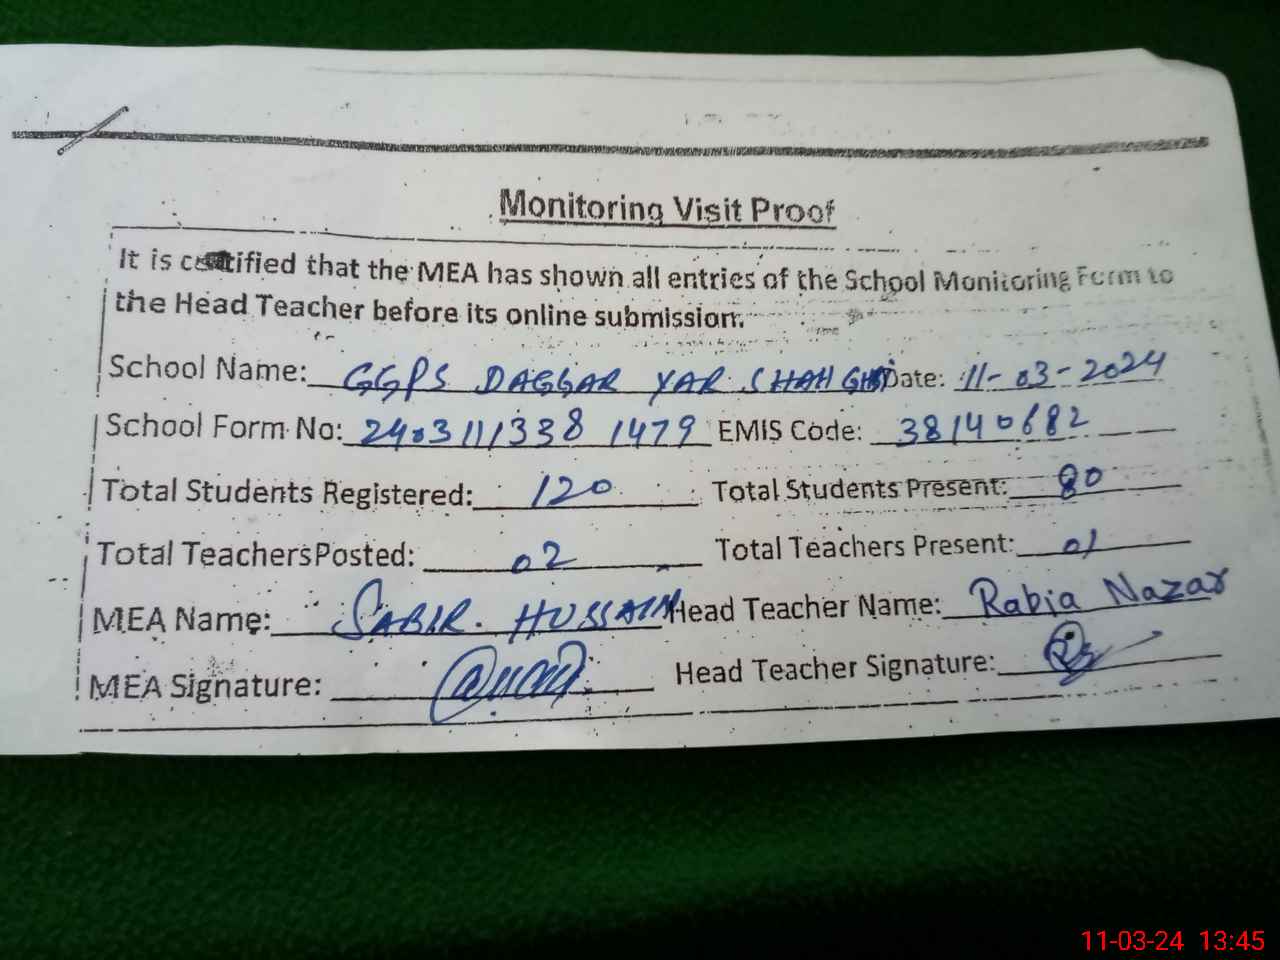 Monitoring Visit Proof
It is certified that the MEA has shown all entries of the School Monitoring Form to
the Head Teacher before its online submission.
School Name: GGPS DAGGAR YAR SHAH Date: 11-03-2024
School Form No: 2403111338 1479 EMIS Code: 38140682
Total Students Registered: 120 Total Students Present: 80
Total Teachers Posted: 02 Total Teachers Present: 01
MEA Name: SABIR. HUSSAIN Head Teacher Name: Rabia Nazar
MEA Signature: Head Teacher Signature:
11-03-24 13:45